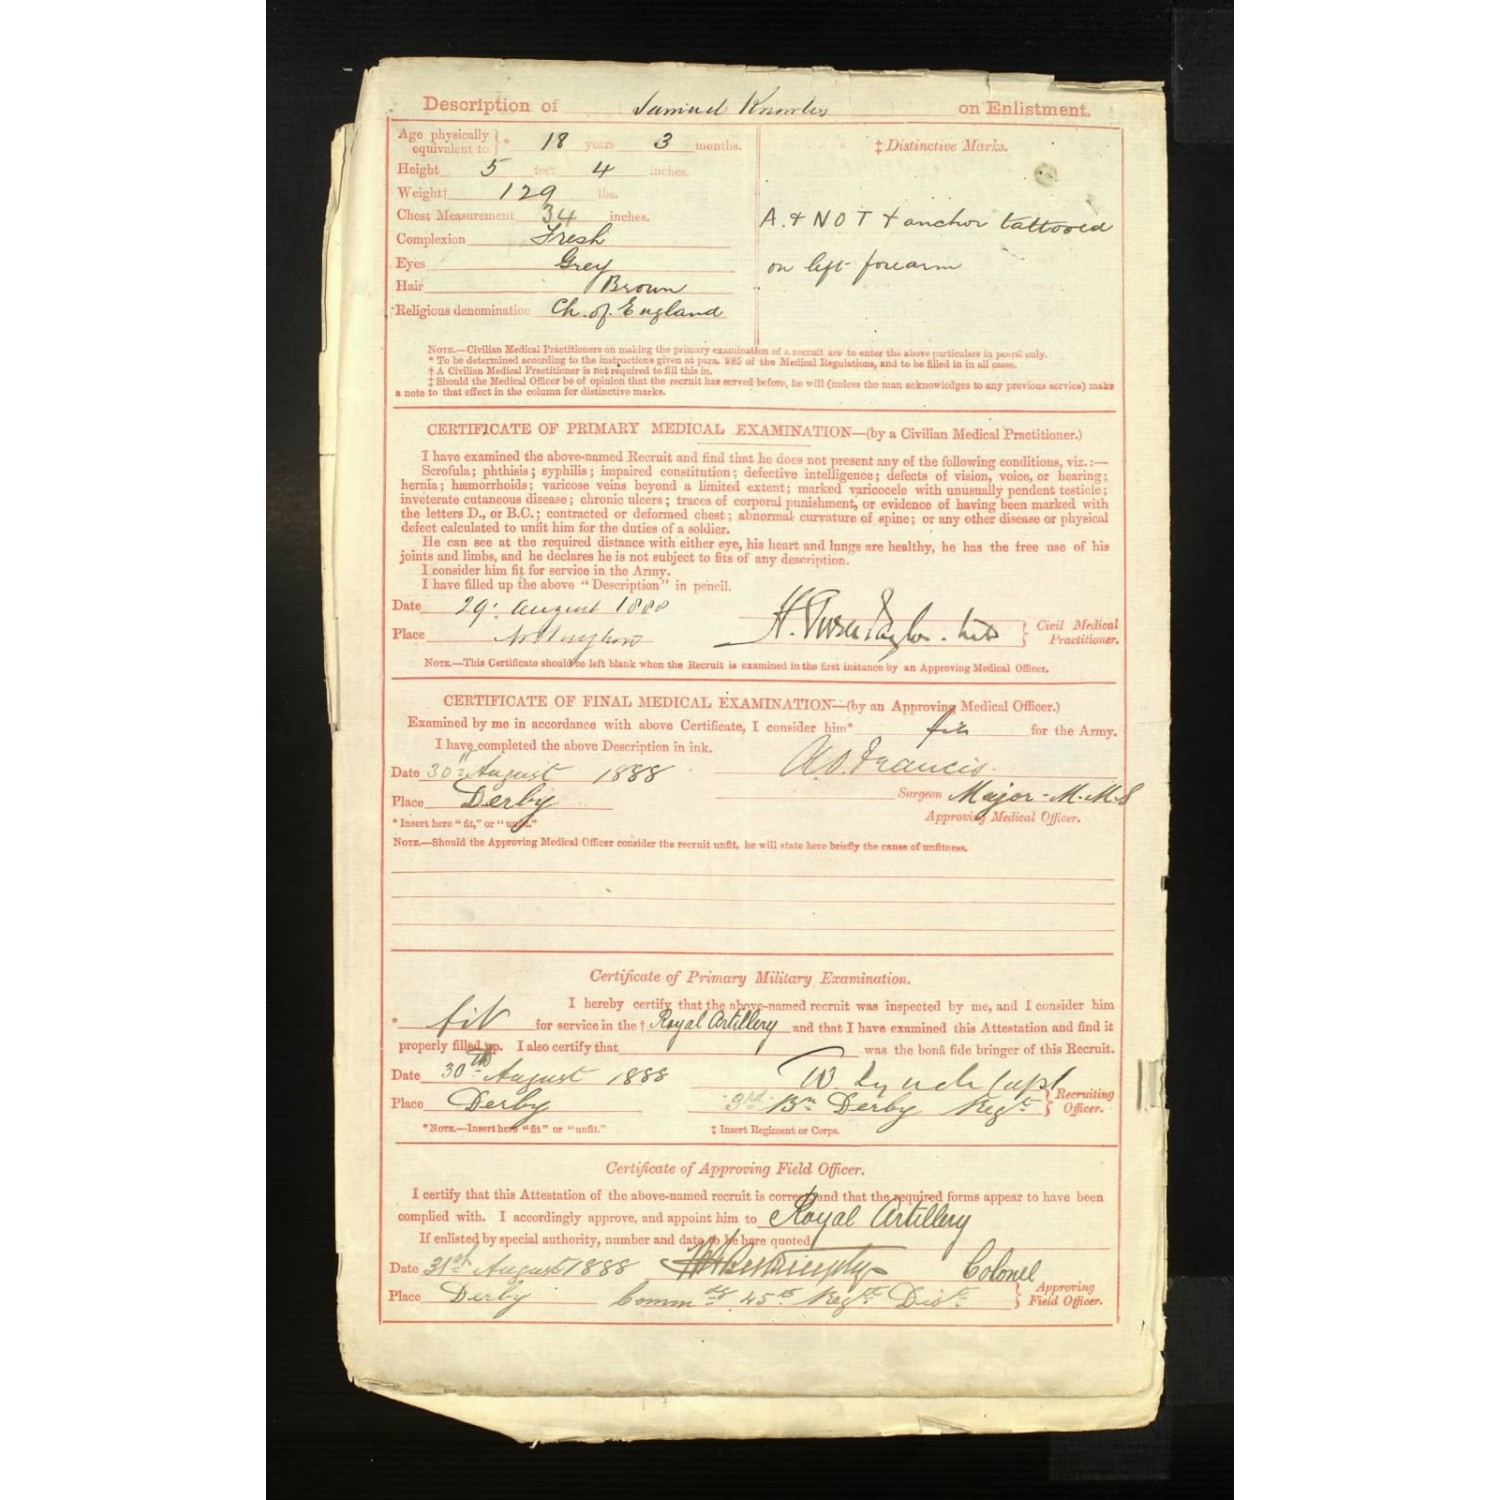 Description of Samuel Knowles on Enlistment.
Age physically equivalent to }* 18 years 3 months.
Height 5 feet 4 inches.
Weight† 129 lbs.
Chest Measurement 34 inches.
Complexion Fresh
Eyes Grey
Hair Brown
Religious denomination Ch. of England
‡ Distinctive Marks.
A. & NOT & anchor tattooed
on left forearm
NOTE.—Civilian Medical Practitioners on making the primary examination of a recruit are to enter the above particulars in pencil only.
* To be determined according to the instructions given at para. 985 of the Medical Regulations, and to be filled in in all cases.
† A Civilian Medical Practitioner is not required to fill this in.
‡ Should the Medical Officer be of opinion that the recruit has served before, he will (unless the man acknowledges to any previous service) make
a note to that effect in the column for distinctive marks.
CERTIFICATE OF PRIMARY MEDICAL EXAMINATION—(by a Civilian Medical Practitioner.)
I have examined the above-named Recruit and find that he does not present any of the following conditions, viz.:—
Scrofula; phthisis; syphilis; impaired constitution; defective intelligence; defects of vision, voice, or hearing;
hernia; hæmorrhoids; varicose veins beyond a limited extent; marked varicocele with unusually pendent testicle;
inveterate cutaneous disease; chronic ulcers; traces of corporal punishment, or evidence of having been marked with
the letters D., or B.C.; contracted or deformed chest; abnormal curvature of spine; or any other disease or physical
defect calculated to unfit him for the duties of a soldier.
He can see at the required distance with either eye, his heart and lungs are healthy, he has the free use of his
joints and limbs, and he declares he is not subject to fits of any description.
I consider him fit for service in the Army.
I have filled up the above "Description" in pencil.
Date 29. August 1888
Place Nottingham
H. Taylor. Civil Medical Practitioner.
NOTE.—This Certificate should be left blank when the Recruit is examined in the first instance by an Approving Medical Officer.
CERTIFICATE OF FINAL MEDICAL EXAMINATION—(by an Approving Medical Officer.)
Examined by me in accordance with above Certificate, I consider him* fit for the Army.
I have completed the above Description in ink.
Date 30th August 1888 Francis.
Place Derby Surgeon Major - M.M.S
* Insert here "fit," or "unfit." Approving Medical Officer.
NOTE.—Should the Approving Medical Officer consider the recruit unfit, he will state here briefly the cause of unfitness.
Certificate of Primary Military Examination.
I hereby certify that the above-named recruit was inspected by me, and I consider him
* fit for service in the † Royal Artillery and that I have examined this Attestation and find it
properly filled up. I also certify that was the bonâ fide bringer of this Recruit.
Date 30th August 1888 W. Lynch Capt
Place Derby 3rd Bn Derby Regt } Recruiting Officer.
*NOTE.—Insert here "fit" or "unfit." ‡ Insert Regiment or Corps.
Certificate of Approving Field Officer.
I certify that this Attestation of the above-named recruit is correct, and that the required forms appear to have been
complied with. I accordingly approve, and appoint him to Royal Artillery
If enlisted by special authority, number and date to be here quoted
Date 31st August 1888 Colonel
Place Derby Commdg 45th Regtl Dist } Approving Field Officer.